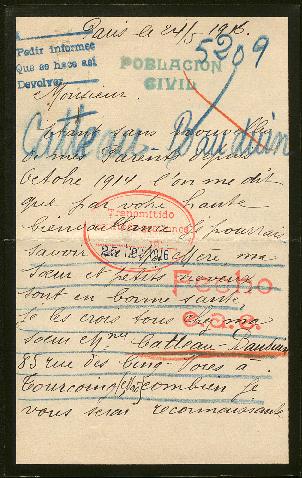 Paris le 24/5 1916.
Pedir informes
Que se hace asi
Devolver
5209
POBLACIÓN
CIVIL
Monsieur.
Etant sans nouvelles
de mes Parents depuis
Catteau-Bauduin
Octobre 1914, l'on me dit
que par votre haute
bienveillance je pourrais
Transmitido
savoir si ma Mère ma
sœur et petits neveux
sont en bonne santé
Pedido
e.a.s.
je les crois tous chez ma
sœur Mme Catteau-Bauduin
85 rue des Cinq-Voies à
Tourcoing combien je
vous serai reconnaissante